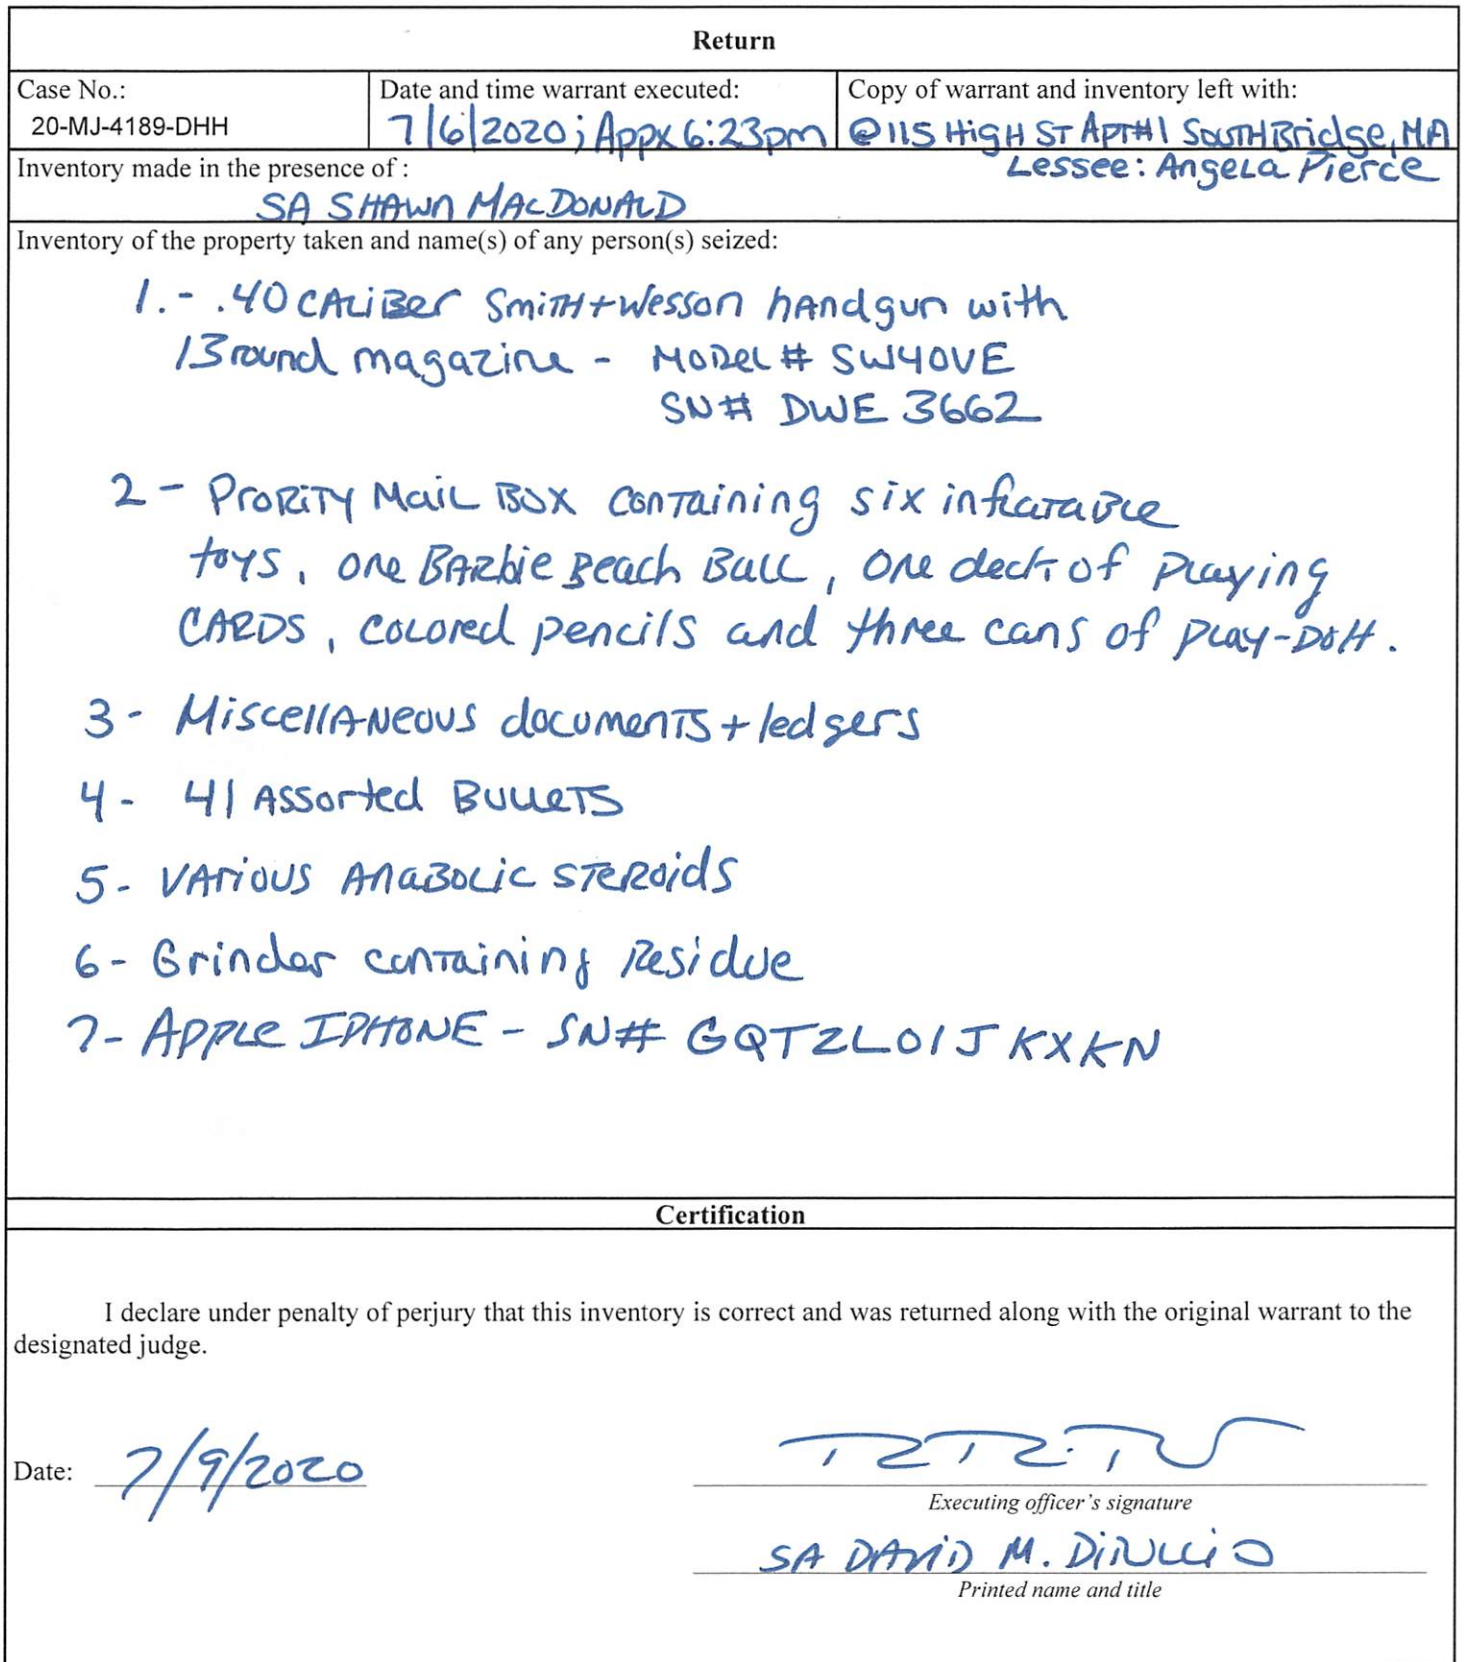 Return
Case No.:
20-MJ-4189-DHH
Date and time warrant executed:
7/6/2020; Appx 6:23pm
Copy of warrant and inventory left with:
@115 HigH ST APT#1 SOUTHBridge, MA
Lessee: Angela Pierce
Inventory made in the presence of :
SA SHAWN MACDONALD
Inventory of the property taken and name(s) of any person(s) seized:
1. - .40 CALiBer SmiTH+Wesson handgun with
13 round magazine - MODEL # SW40VE
SN# DWE 3662
2 - PrORiTY Mail BOX conTaining six inflaTaBle
toys, one BARbie Beach Ball, one deck of Playing
CARDS, colored pencils and three cans of Play-DOH.
3 - MiscellANeous documenTS + ledgers
4 - 41 Assorted BulleTS
5 - VArious AnaBOLic STERoids
6 - Grinder conTaining Residue
7 - APPLe IPHONE - SN# GQTZL01JKXKN
Certification
I declare under penalty of perjury that this inventory is correct and was returned along with the original warrant to the
designated judge.
Date: 7/9/2020
Executing officer's signature
SA DAViD M. DiTullio
Printed name and title